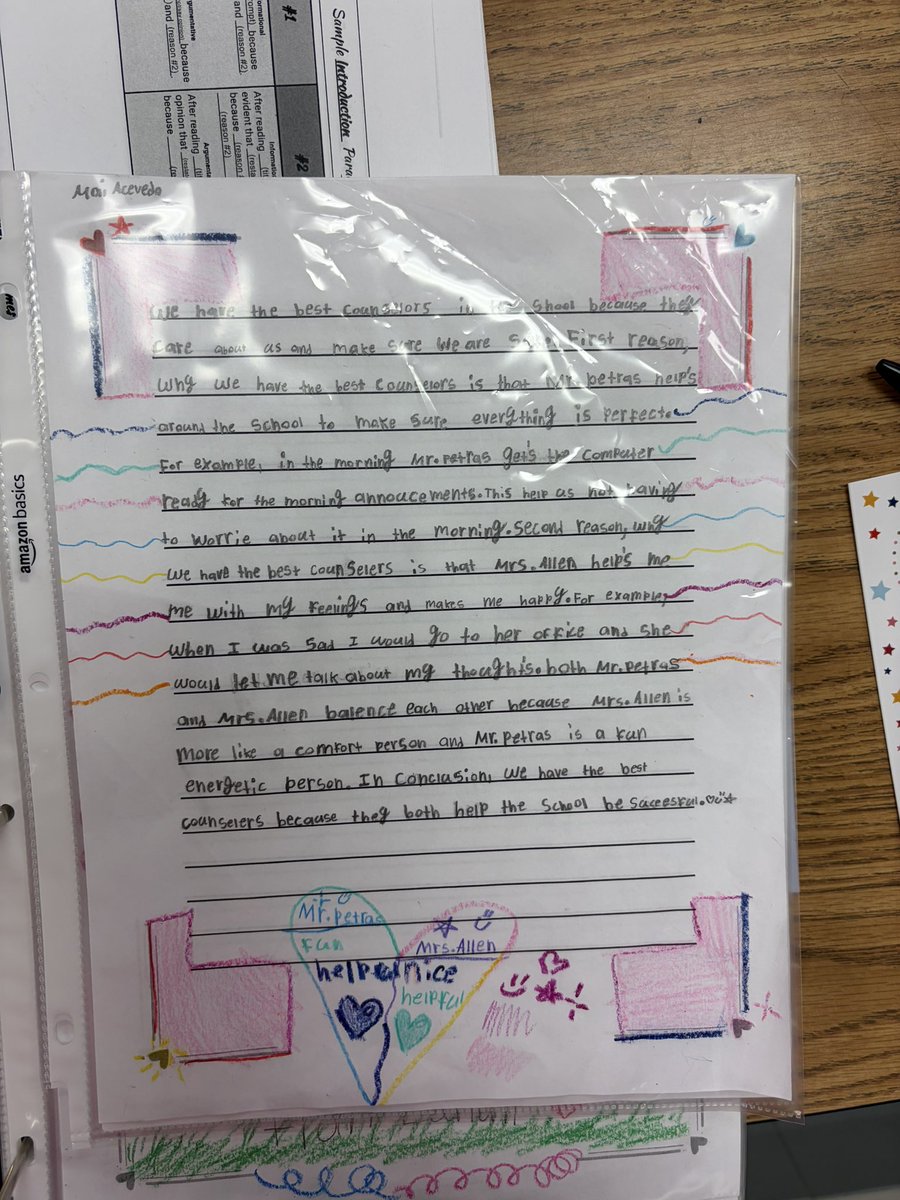 Sample Introduction Para
#1
#2
formational
prompt) because
and (reason #2).
gumentative
because
) and (reason #2).
Information
After reading
evident that
because (reason
(reason #2)
Argumen
After reading
opinion that
because
Acevedo
amazon basics
We have the best Counselors in the shool because they
Care about us and make sure we are safe. First reason,
why we have the best Counselors is that Mr. Petras help's
around the school to make sure everything is perfect.
For example, in the morning Mr. Petras get's the computer
ready for the morning annoucements. This help as not having
to worrie about it in the morning. Second reason, why
we have the best counselers is that Mrs. Allen help's me
me with my feelings and makes me happy. For example,
when I was sad I would go to her office and she
would let me talk about my thought's. both Mr. Petras
and Mrs. Allen balence each other because Mrs. Allen is
more like a comfort person and Mr. Petras is a fun
energetic person. In conclusion, we have the best
counselers because they both help the school be saccesful.
Mr. Petras
fun
helpful
Mrs. Allen
nice
helpful